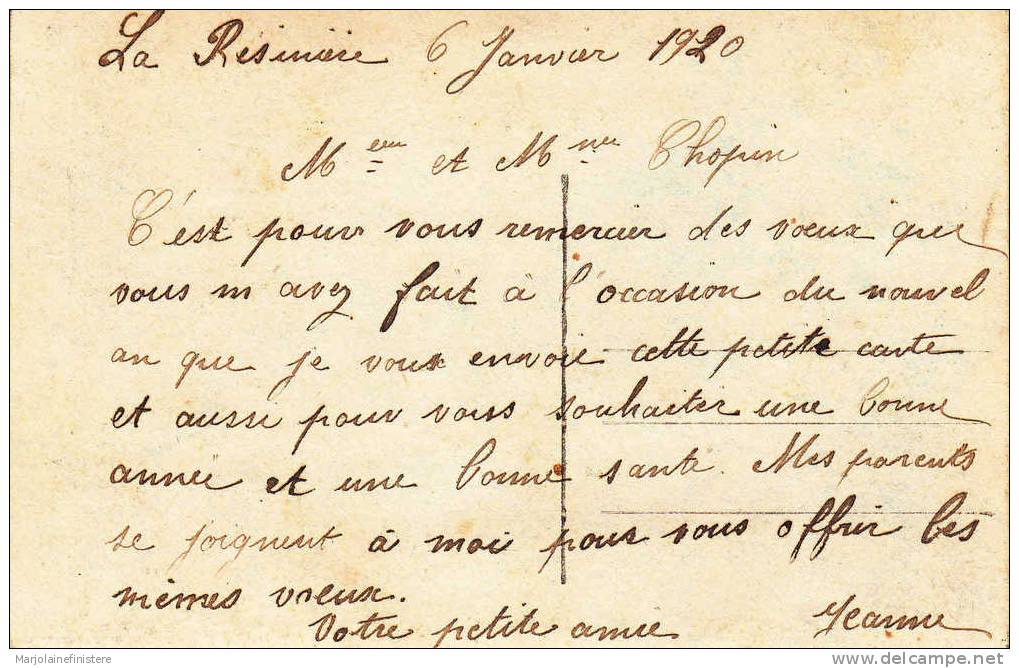 La Résinière 6 Janvier 1920
M et Mme Chopin
C'est pour vous remercier des vœux que
vous m avez fait à l'occasion du nouvel
an que je vous envoie cette petite carte
et aussi pour vous souhaiter une bonne
année et une bonne santé. Mes parents
se joignent à moi pour vous offrir les
mêmes vœux.
Votre petite amie Jeanne
Marjolainefinistere
delcampe.net